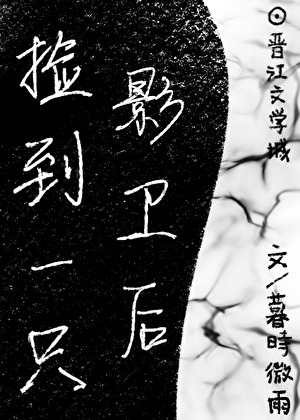 捡到一只
影卫后
⊙晋江文学城
文/暮時微雨